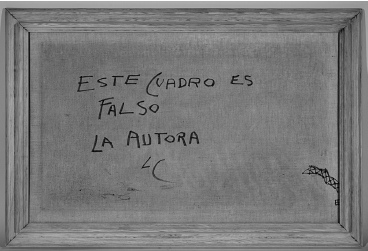 ESTE CUADRO ES
FALSO
LA AUTORA
LC